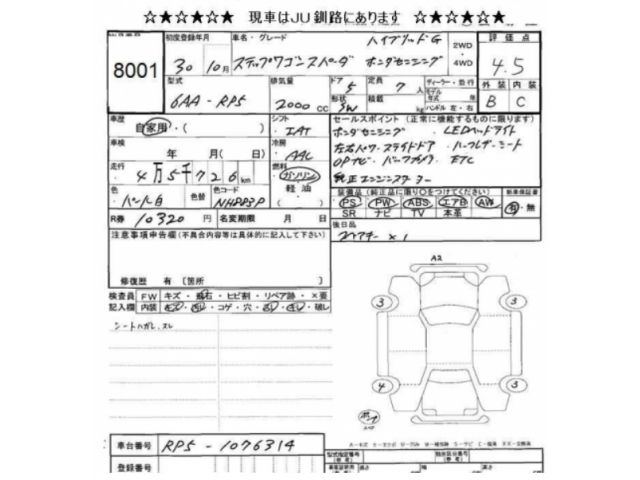 ☆★☆★☆★ 現車はJU釧路にあります ☆★☆★☆★
8001
初度登録年月
30年10月
車名・グレード
ハイブリッドG
ステップワゴンスパーダ ホンダセンシング
2WD
4WD
評価点
4.5
外装 内装
B C
型式
6AA-RP5
排気量
2000 CC
ドア
5
形状
SW
定員
7人
積載
kg
ディーラー・並行
モデル年式 年
ハンドル 左・右
車歴
自家用・( )
シフト
IAT
車検
年 月( )
冷房
AAC
走行
4万5千726km
燃料
ガソリン
軽油
( )
色
パール白
色替
色コード
NH883P
R券 10320 円
名変期限 月 日
セールスポイント (正常に機能するものに限ります)
ホンダセンシング LEDヘッドライト
左右パワースライドドア ハーフレザーシート
OPナビ バックカメラ ETC
純正エンジンスターター
装備品(純正品に限り○をつけてください)
PS PW ABS エアB AW
SR ナビ TV 本革
新車保証書
有・無
後日品
スペアキー×1
注意事項申告欄(不具合内容等は具体的に記入して下さい)
修復歴 有 〔箇所
検査員 FW キズ・飛石・ヒビ割・リペア跡・×要
記入欄 内装
コゲ・穴
破レ
シートハガレ、スレ
A2
3
3
4
3
車台番号 RP5-1076314
登録番号
型式指定番号
類別区分番号
長さ
幅
高さ